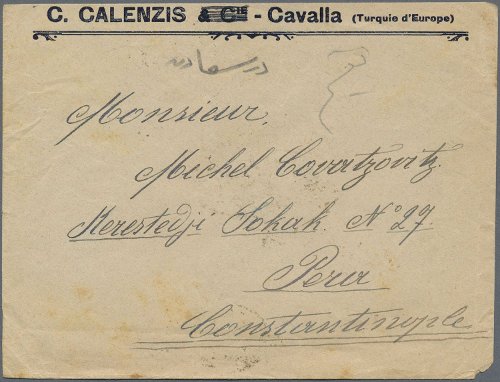 C. CALENZIS & Cie - Cavalla (Turquie d'Europe)
در سعادت
Monsieur,
Michel Covatzovitz.
Kerestedji Sokak. N° 27
Pera
Constantinople